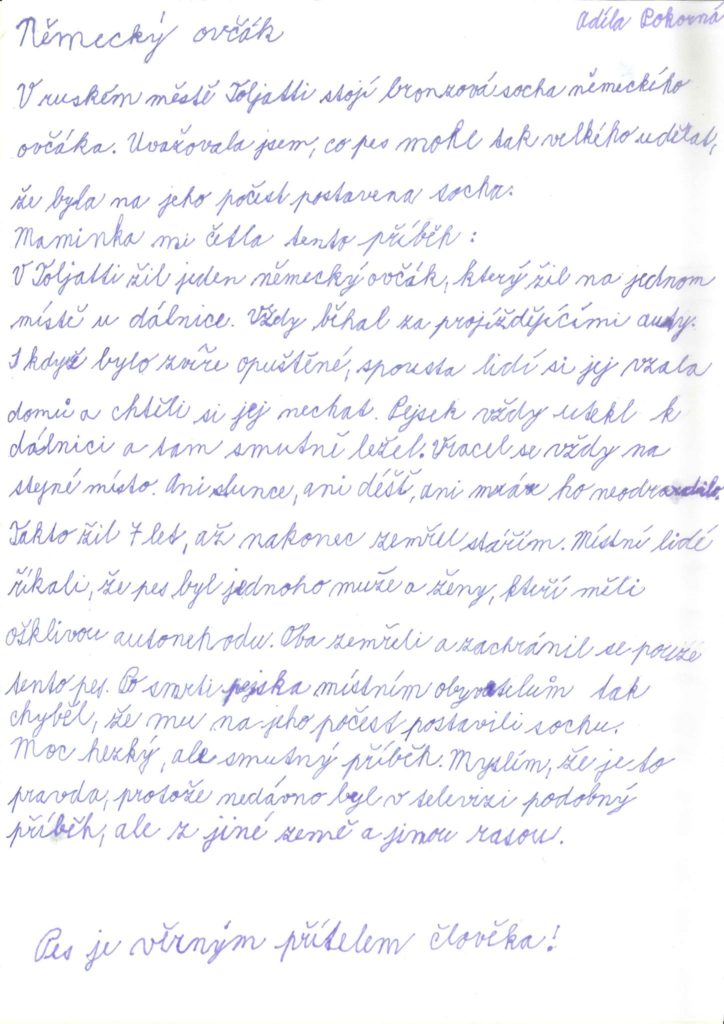 Adéla Pokorná
Německý ovčák
V ruském městě Toljatti stojí bronzová socha německého
ovčáka. Uvažovala jsem, co pes mohl tak velkého udělat,
že byla na jeho počest postavena socha.
Maminka mi četla tento příběh :
V Toljatti žil jeden německý ovčák, který žil na jednom
místě u dálnice. Vždy běhal za projíždějícími auty.
I když bylo zvíře opuštěné, spousta lidí si jej vzala
domů a chtěli si jej nechat. Pejsek vždy utekl k
dálnici a tam smutně ležel. Vracel se vždy na
stejné místo. Ani slunce, ani déšť, ani mráz ho neodradilo.
Takto žil 7 let, až nakonec zemřel stářím. Místní lidé
říkali, že pes byl jednoho muže a ženy, kteří měli
ošklivou autonehodu. Oba zemřeli a zachránil se pouze
tento pes. Po smrti pejska místním obyvatelům tak
chyběl, že mu na jeho počest postavili sochu.
Moc hezký, ale smutný příběh. Myslím, že je to
pravda, protože nedávno byl v televizi podobný
příběh, ale z jiné země a jinou rasou.
Pes je věrným přítelem člověka!